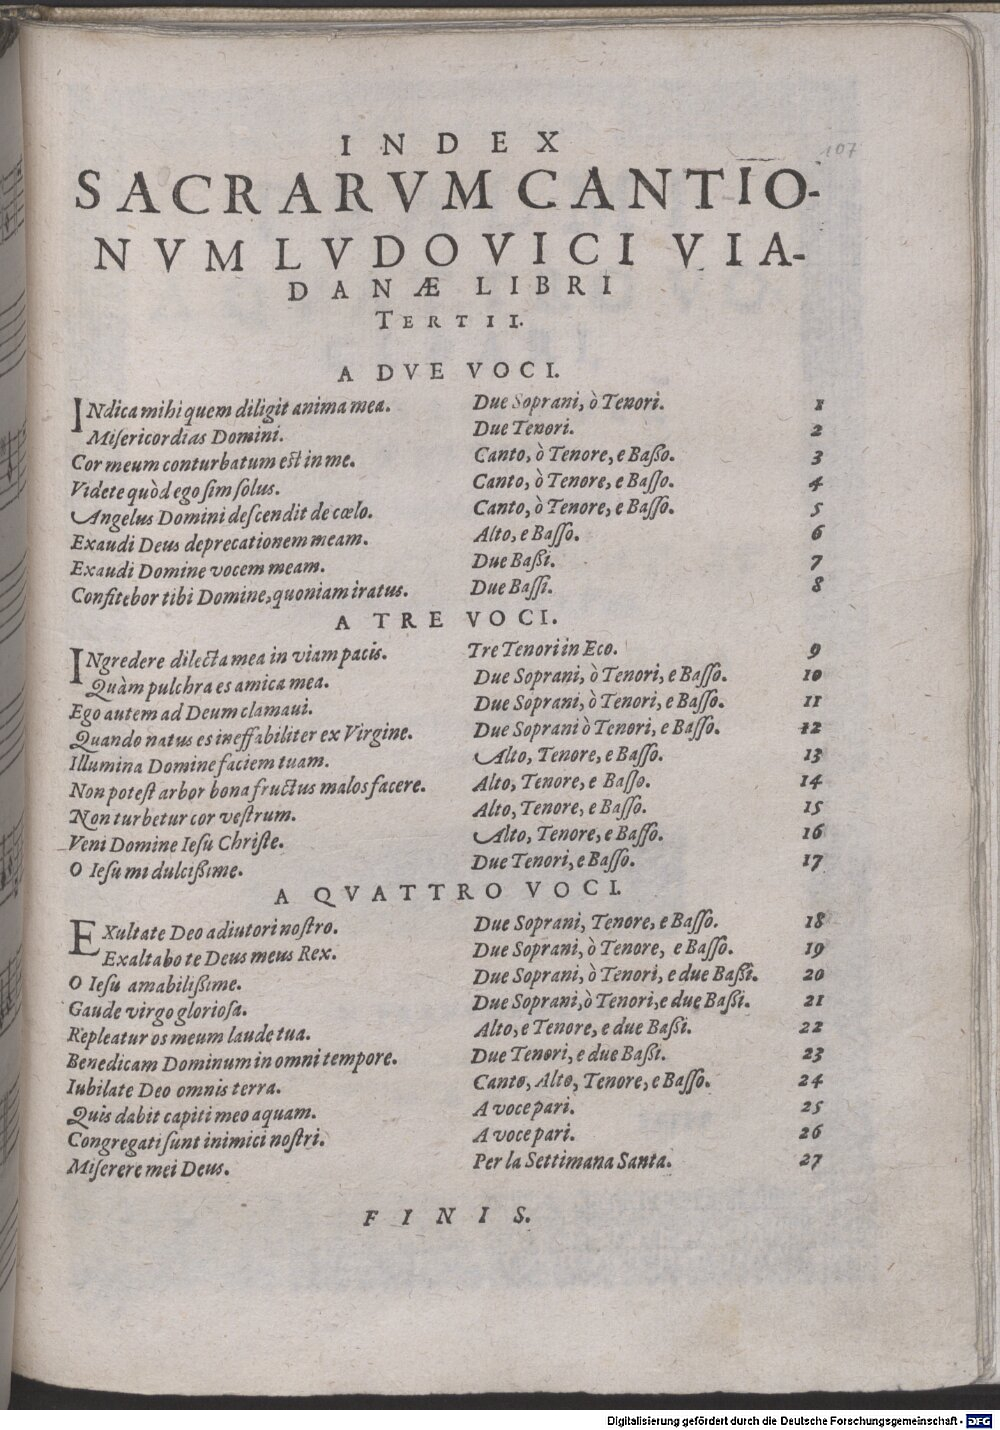 107
INDEX
SACRARVM CANTIO-
NVM LVDOVICI VIA-
DANÆ LIBRI
TERTII.
A DVE VOCI.
INdica mihi quem diligit anima mea. Due Soprani, ò Tenori. 1
Miſericordias Domini. Due Tenori. 2
Cor meum conturbatum est in me. Canto, ò Tenore, e Baßo. 3
Videte quòd ego ſim ſolus. Canto, ò Tenore, e Baſſo. 4
Angelus Domini deſcendit de cœlo. Canto, ò Tenore, e Baſſo. 5
Exaudi Deus deprecationem meam. Alto, e Baſſo. 6
Exaudi Domine vocem meam. Due Baßi. 7
Confitebor tibi Domine, quoniam iratus. Due Baſſi. 8
A TRE VOCI.
INgredere dilecta mea in viam pacis. Tre Tenori in Eco. 9
Quàm pulchra es amica mea. Due Soprani, ò Tenori, e Baſſo. 10
Ego autem ad Deum clamaui. Due Soprani, ò Tenori, e Baſſo. 11
Quando natus es ineffabiliter ex Virgine. Due Soprani ò Tenori, e Baſſo. 12
Illumina Domine faciem tuam. Alto, Tenore, e Baſſo. 13
Non poteſt arbor bona fructus malos facere. Alto, Tenore, e Baſſo. 14
Non turbetur cor veſtrum. Alto, Tenore, e Baſſo. 15
Veni Domine Ieſu Chriſte. Alto, Tenore, e Baſſo. 16
O Ieſu mi dulcißime. Due Tenori, e Baſſo. 17
A QVATTRO VOCI.
EXultate Deo adiutori noſtro. Due Soprani, Tenore, e Baſſo. 18
Exaltabo te Deus meus Rex. Due Soprani, ò Tenore, e Baſſo. 19
O Ieſu amabilißime. Due Soprani, ò Tenori, e due Baßi. 20
Gaude virgo glorioſa. Due Soprani, ò Tenori, e due Baßi. 21
Repleatur os meum laude tua. Alto, e Tenore, e due Baßi. 22
Benedicam Dominum in omni tempore. Due Tenori, e due Baßi. 23
Iubilate Deo omnis terra. Canto, Alto, Tenore, e Baſſo. 24
Quis dabit capiti meo aquam. A voce pari. 25
Congregati ſunt inimici noſtri. A voce pari. 26
Miſerere mei Deus. Per la Settimana Santa. 27
FINIS.
Digitalisierung gefördert durch die Deutsche Forschungsgemeinschaft - DFG